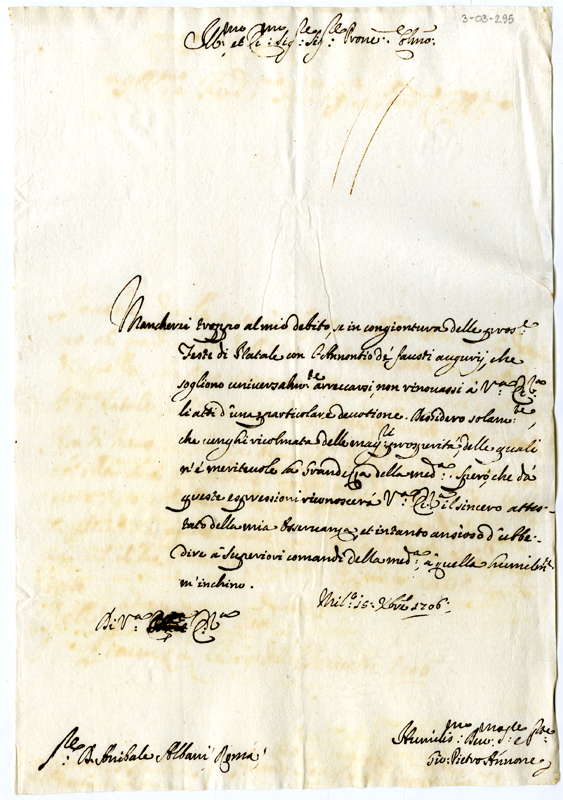 3-03-295
Ill.mo et R.mo Sig.re Sig.re Prone. Colmo.
Mancherei troppo al mio debito, se in congiontura delle pross.e
Feste di Natale con l'Annontio de fausti augurij, che
sogliono universalm.te arrecarsi, non rinovassi à V.ra Ecc.za
li atti d'una particolare devotione. Desidero solame.te,
che venghi ricolmata delle mag.ri prosperità, delle quali
n'è meritevole la Grandezza della med.ma Sperò, che dà
queste espressioni riconoscerà V.ra il sincero attes-
tato della mia Osservanza, et intanto ansioso d'ubbe-
dire à Superiori comandi della med.ma, à quella humilm.te
m'inchino.
Mil.o 15: Xbre 1706.
Di V.ra
S.re D. Anibale Albani Roma
Humilis.mo Dev.mo S.re
Gio: Pietro Annone